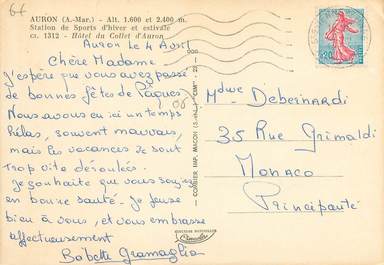 66
AURON (A.-Mar.) - Alt. 1.600 et 2.400 m.
Station de Sports d'hiver et estivale
CA. 1312 - Hôtel du Collet d'Auron
Auron le 4 Avril
Chère Madame -
J'espère que vous avez passé
de bonnes fêtes de Pâques.
Nous avons eu ici un temps
hélas, souvent mauvais,
mais les vacances se sont
trop vite déroulées.
Je souhaite que vous soyez
en bonne santé - Je pense
bien à vous, et vous embrasse
affectueusement
Babette Gramaglia
COMBIER IMP. MACON (S.-&-L.)
EDITION
Cimcolor
0,20
Mdme Debernardi
35 Rue Grimaldi
Monaco
Principauté